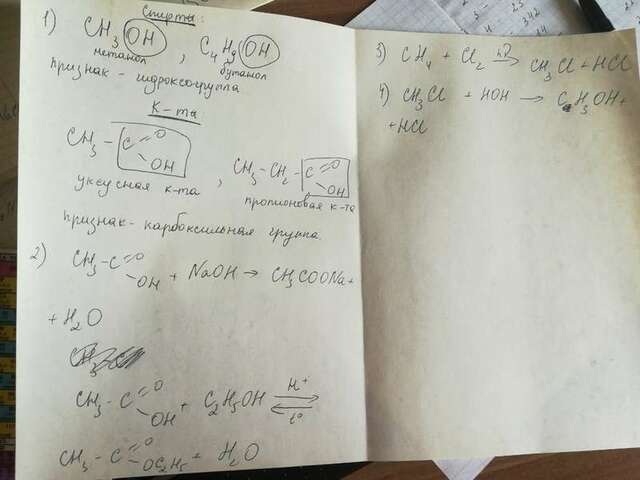 1) Спирты:
CH3 OH , C4H9 OH
метанол бутанол
признак - гидроксогруппа
К-ты:
CH3 - C =O
OH
CH3 - CH2 - C =O
OH
уксусная к-та , пропионовая к-та
признак - карбоксильная группа.
2) CH3 - C =O
OH + NaOH → CH3COONa +
+ H2O
CH3 - C =O
OH + C2H5OH H+ ⇄ t°
CH3 - C =O
OC2H5 + H2O
3) CH4 + Cl2 → CH3Cl + HCl
4) CH3Cl + HOH → H3OH +
+ HCl